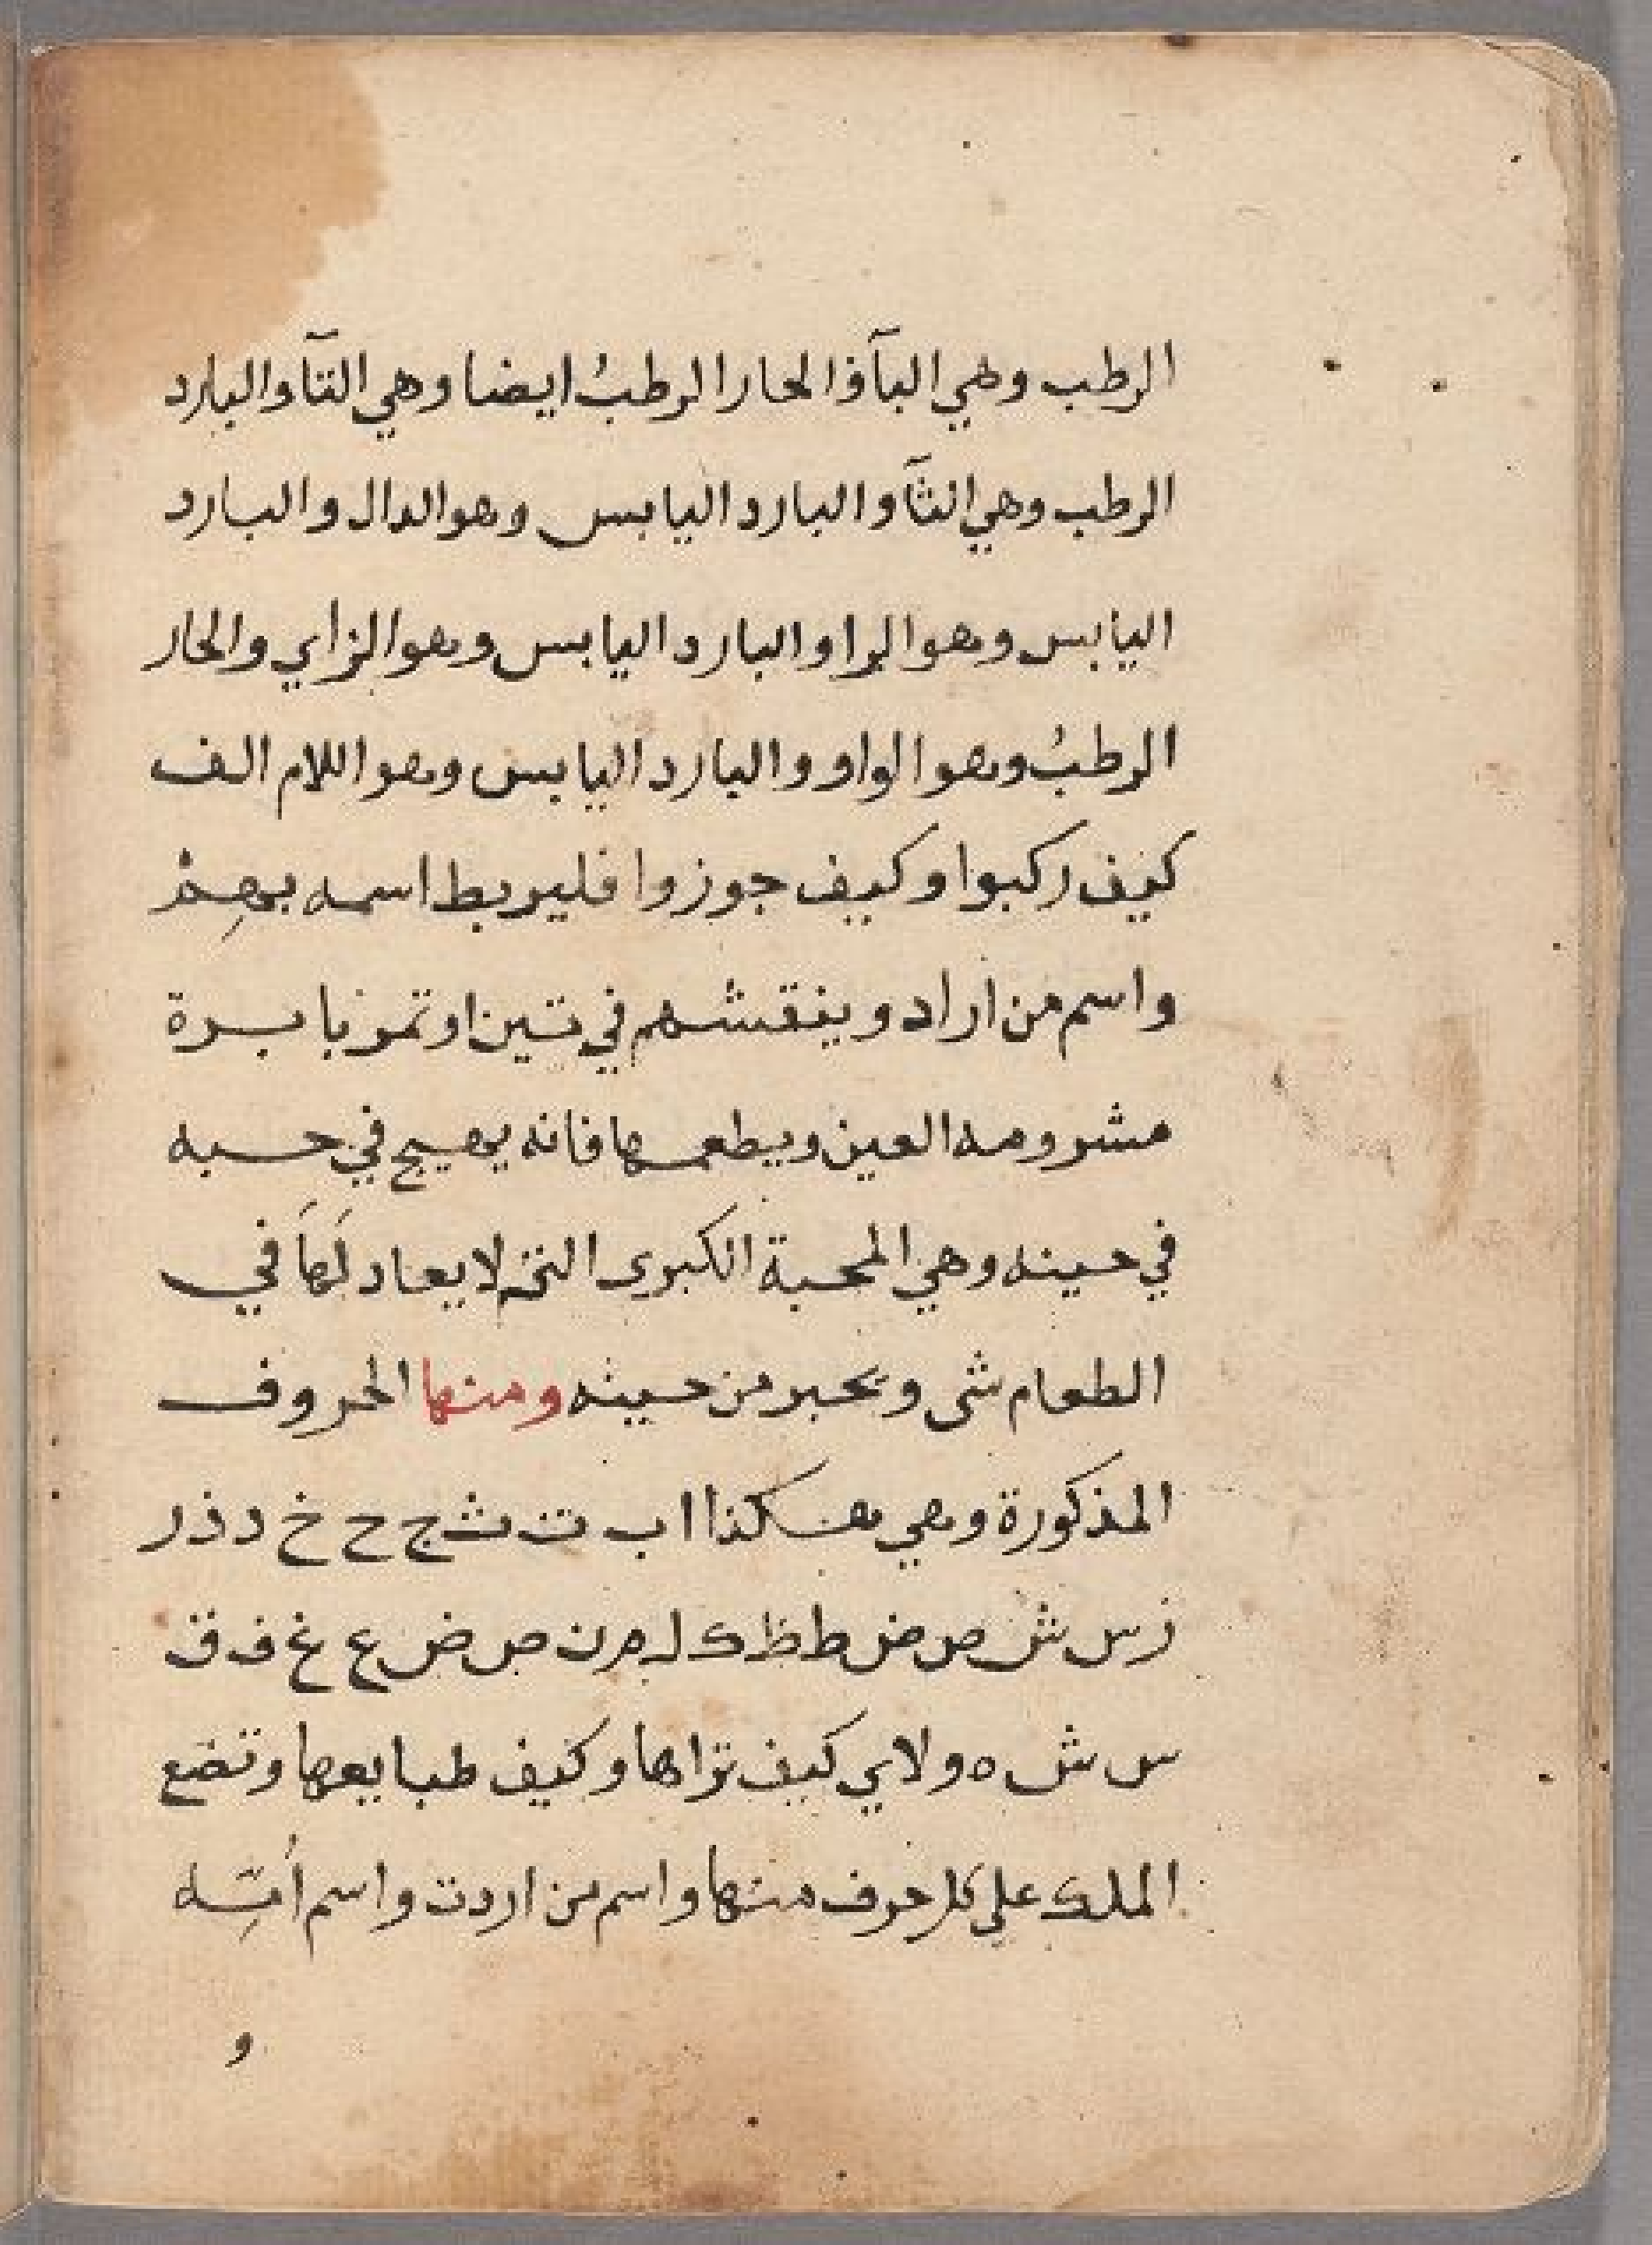 الرطب وهي البآ والحار الرطبُ ايضا وهي التآ والبارد
الرطب وهي الثآ والبارد اليابس وهو الدال والبارد
اليابس وهو الرا والبارد اليابس وهو الزاي والحار
الرطبُ وهو الواو والبارد اليابس وهو اللام الف
كيف ركبوا وكيف جوزوا فليربط اسمه بهِمْ
واسم من اراد وينقشهم في تين او تمر يابسرة
مشرومه العين ويطعمها فانه يهيج في حبه
في حينه وهي المحبة الكبرى التي لا يعاد لَهَا في
الطعام شى ويحبر من حينه ومنها الحروف
المذكورة وهي هكذا ا ب ت ث ج ح خ د ذ ر
ز س ش ص ض ط ظ ك ل م ن ص ض ع غ ف ق
س ش ه و لا ي كيف تراها وكيف طبايعها وتضع
الملك على كل حرف منها واسم من اردت واسم اُمِّه
و